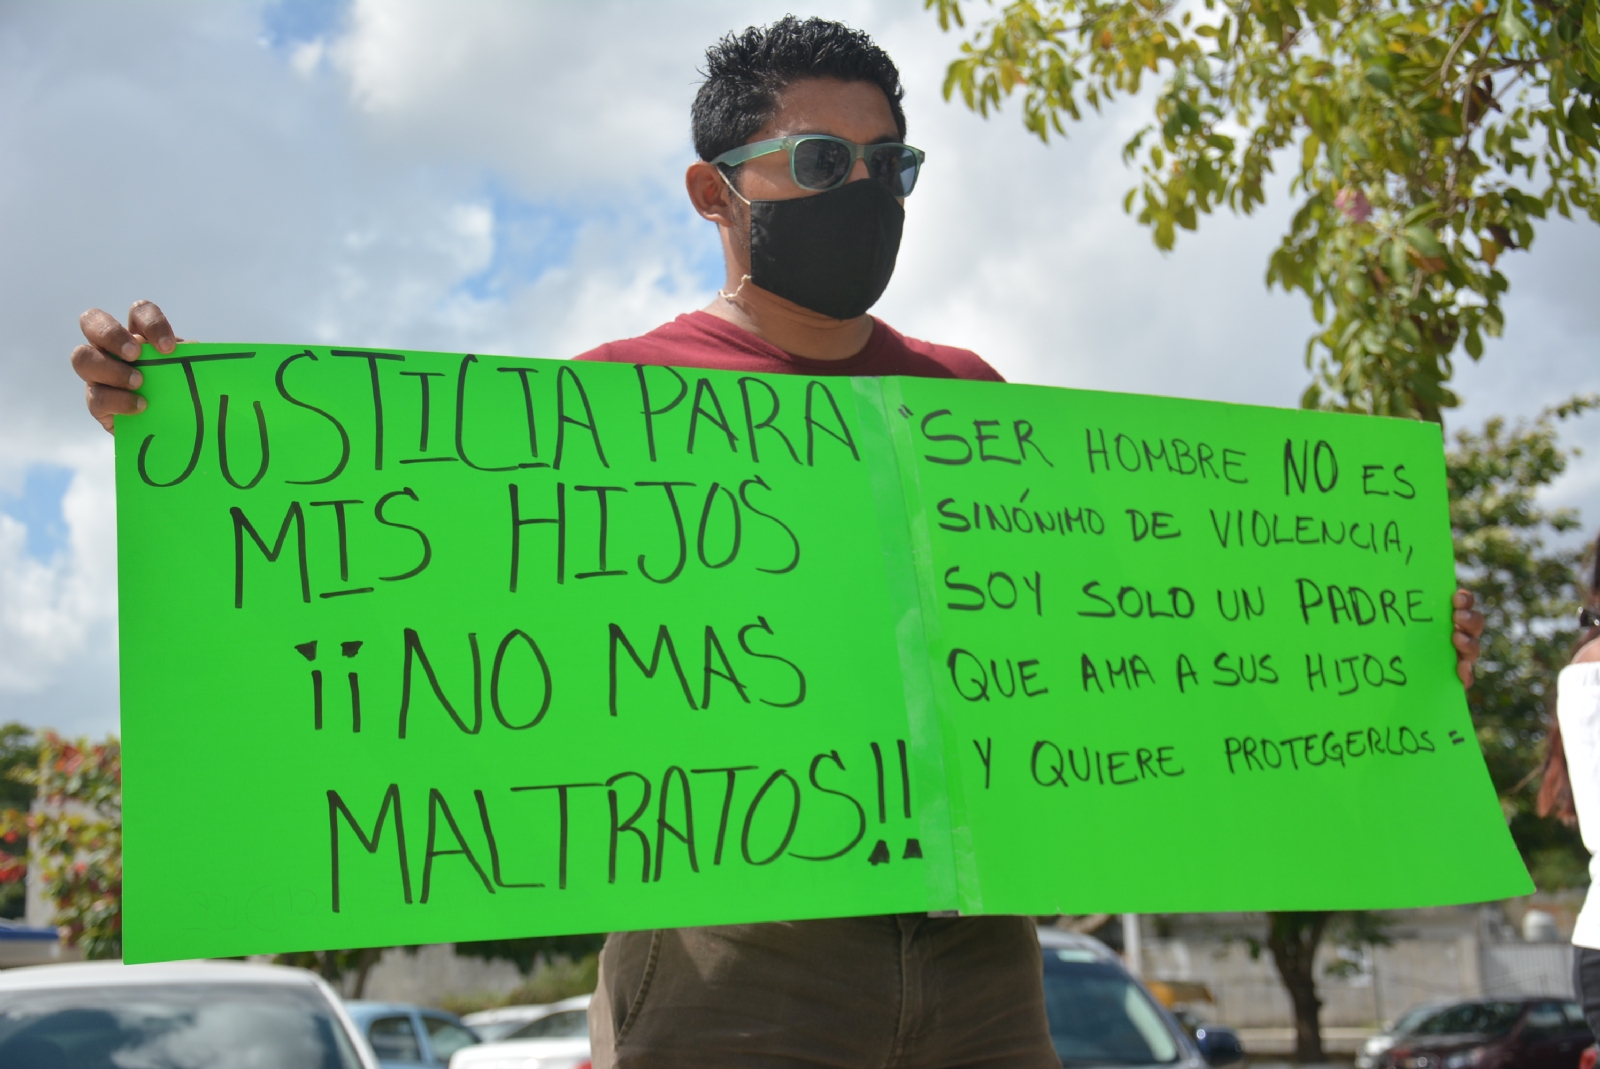 JUSTICIA PARA
MIS HIJOS
¡¡NO MAS
MALTRATOS!!
"SER HOMBRE NO ES
SINÓNIMO DE VIOLENCIA,
SOY SOLO UN PADRE
QUE AMA A SUS HIJOS
Y QUIERE PROTEGERLOS =